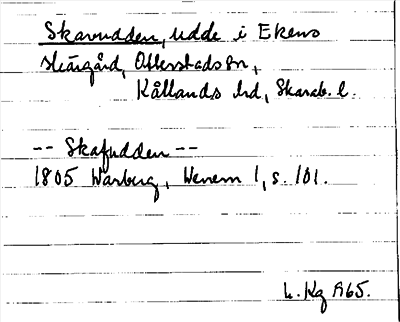 Skarvudden, udde i Ekens
skärgård, Otterstads sn,
Kållands hd, Skarab. l.
-- Skafudden --
1805 Warberg, Wenern 1, s. 101.
L. Kg A65.